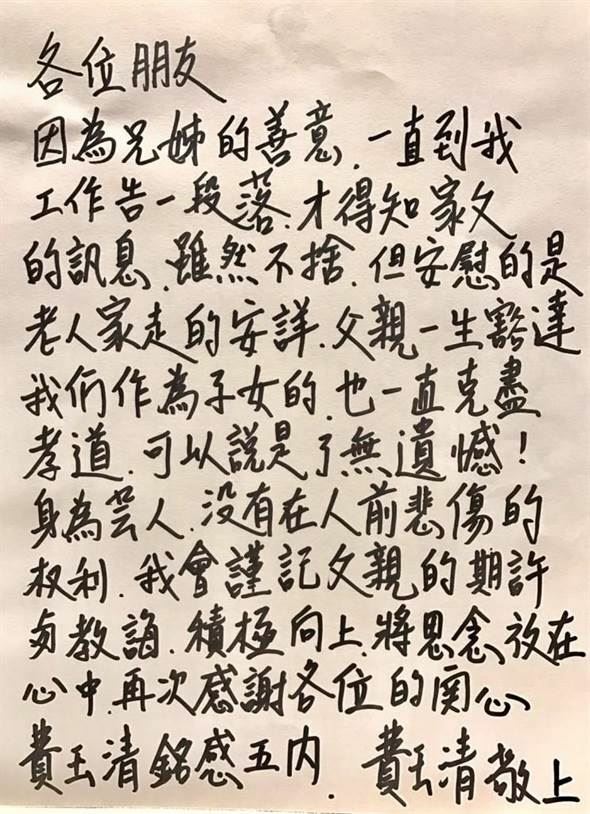 各位朋友
因為兄姊的善意.一直到我
工作告一段落.才得知家父
的訊息.雖然不捨.但安慰的是
老人家走的安詳.父親一生豁達
我们作為子女的.也一直克盡
孝道.可以說是了無遺憾!
身為芸人.没有在人前悲傷的
权利.我會謹記父親的期許
匆教誨.積極向上.將思念放在
心中.再次感謝各位的関心
費玉清銘感五内. 費玉清敬上